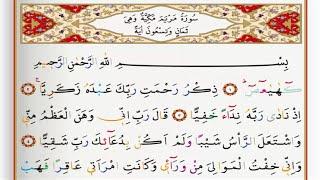 سُورَةُ مَرْيَمَ مَكِّيَّةٌ وَهِيَ
ثَمَانٍ وَتِسْعُونَ آيَةً
بِسْمِ اللّٰهِ الرَّحْمٰنِ الرَّحِيمِ
كٓهٰيٰعٓصٓ ۝١ ذِكْرُ رَحْمَتِ رَبِّكَ عَبْدَهُ زَكَرِيَّا ۝٢
اِذْ نَادٰى رَبَّهُ نِدَٓاءً خَفِيًّا ۝٣ قَالَ رَبِّ اِنّ۪ي وَهَنَ الْعَظْمُ مِنّ۪ي
وَاشْتَعَلَ الرَّأْسُ شَيْبًا وَلَمْ اَكُنْ بِدُعَٓائِكَ رَبِّ شَقِيًّا ۝٤
وَاِنّ۪ي خِفْتُ الْمَوَالِيَ مِنْ وَرَٓاء۪ي وَكَانَتِ امْرَاَت۪ي عَاقِرًا فَهَبْ